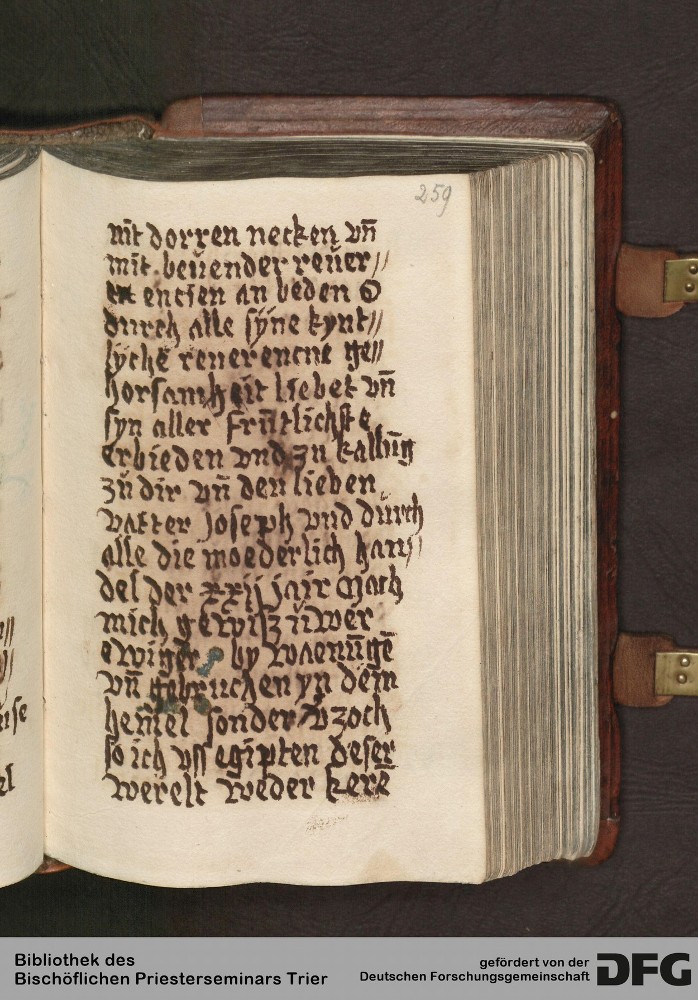 259
mit dorren necken vn̄
mit beuender reuer//
encien an beden O
durch alle sÿne kynt//
lÿche reuerencne ge//
horsamheit liebet vn̄
syn aller frūtlichste
erbieden vnd zu kallūg
zů dir vn̄ den lieben
vatter joseph vnd durch
alle die moederlich han//
del der xxij jair Mach
mich gewisz ůwer
ewiger by waenūgē
vn̄ gebruchen yn dem
hem̄el sonder vzoch
so ich vss egipten deser
werelt weder kerē
Bibliothek des
Bischöflichen Priesterseminars Trier
gefördert von der
Deutschen Forschungsgemeinschaft
DFG